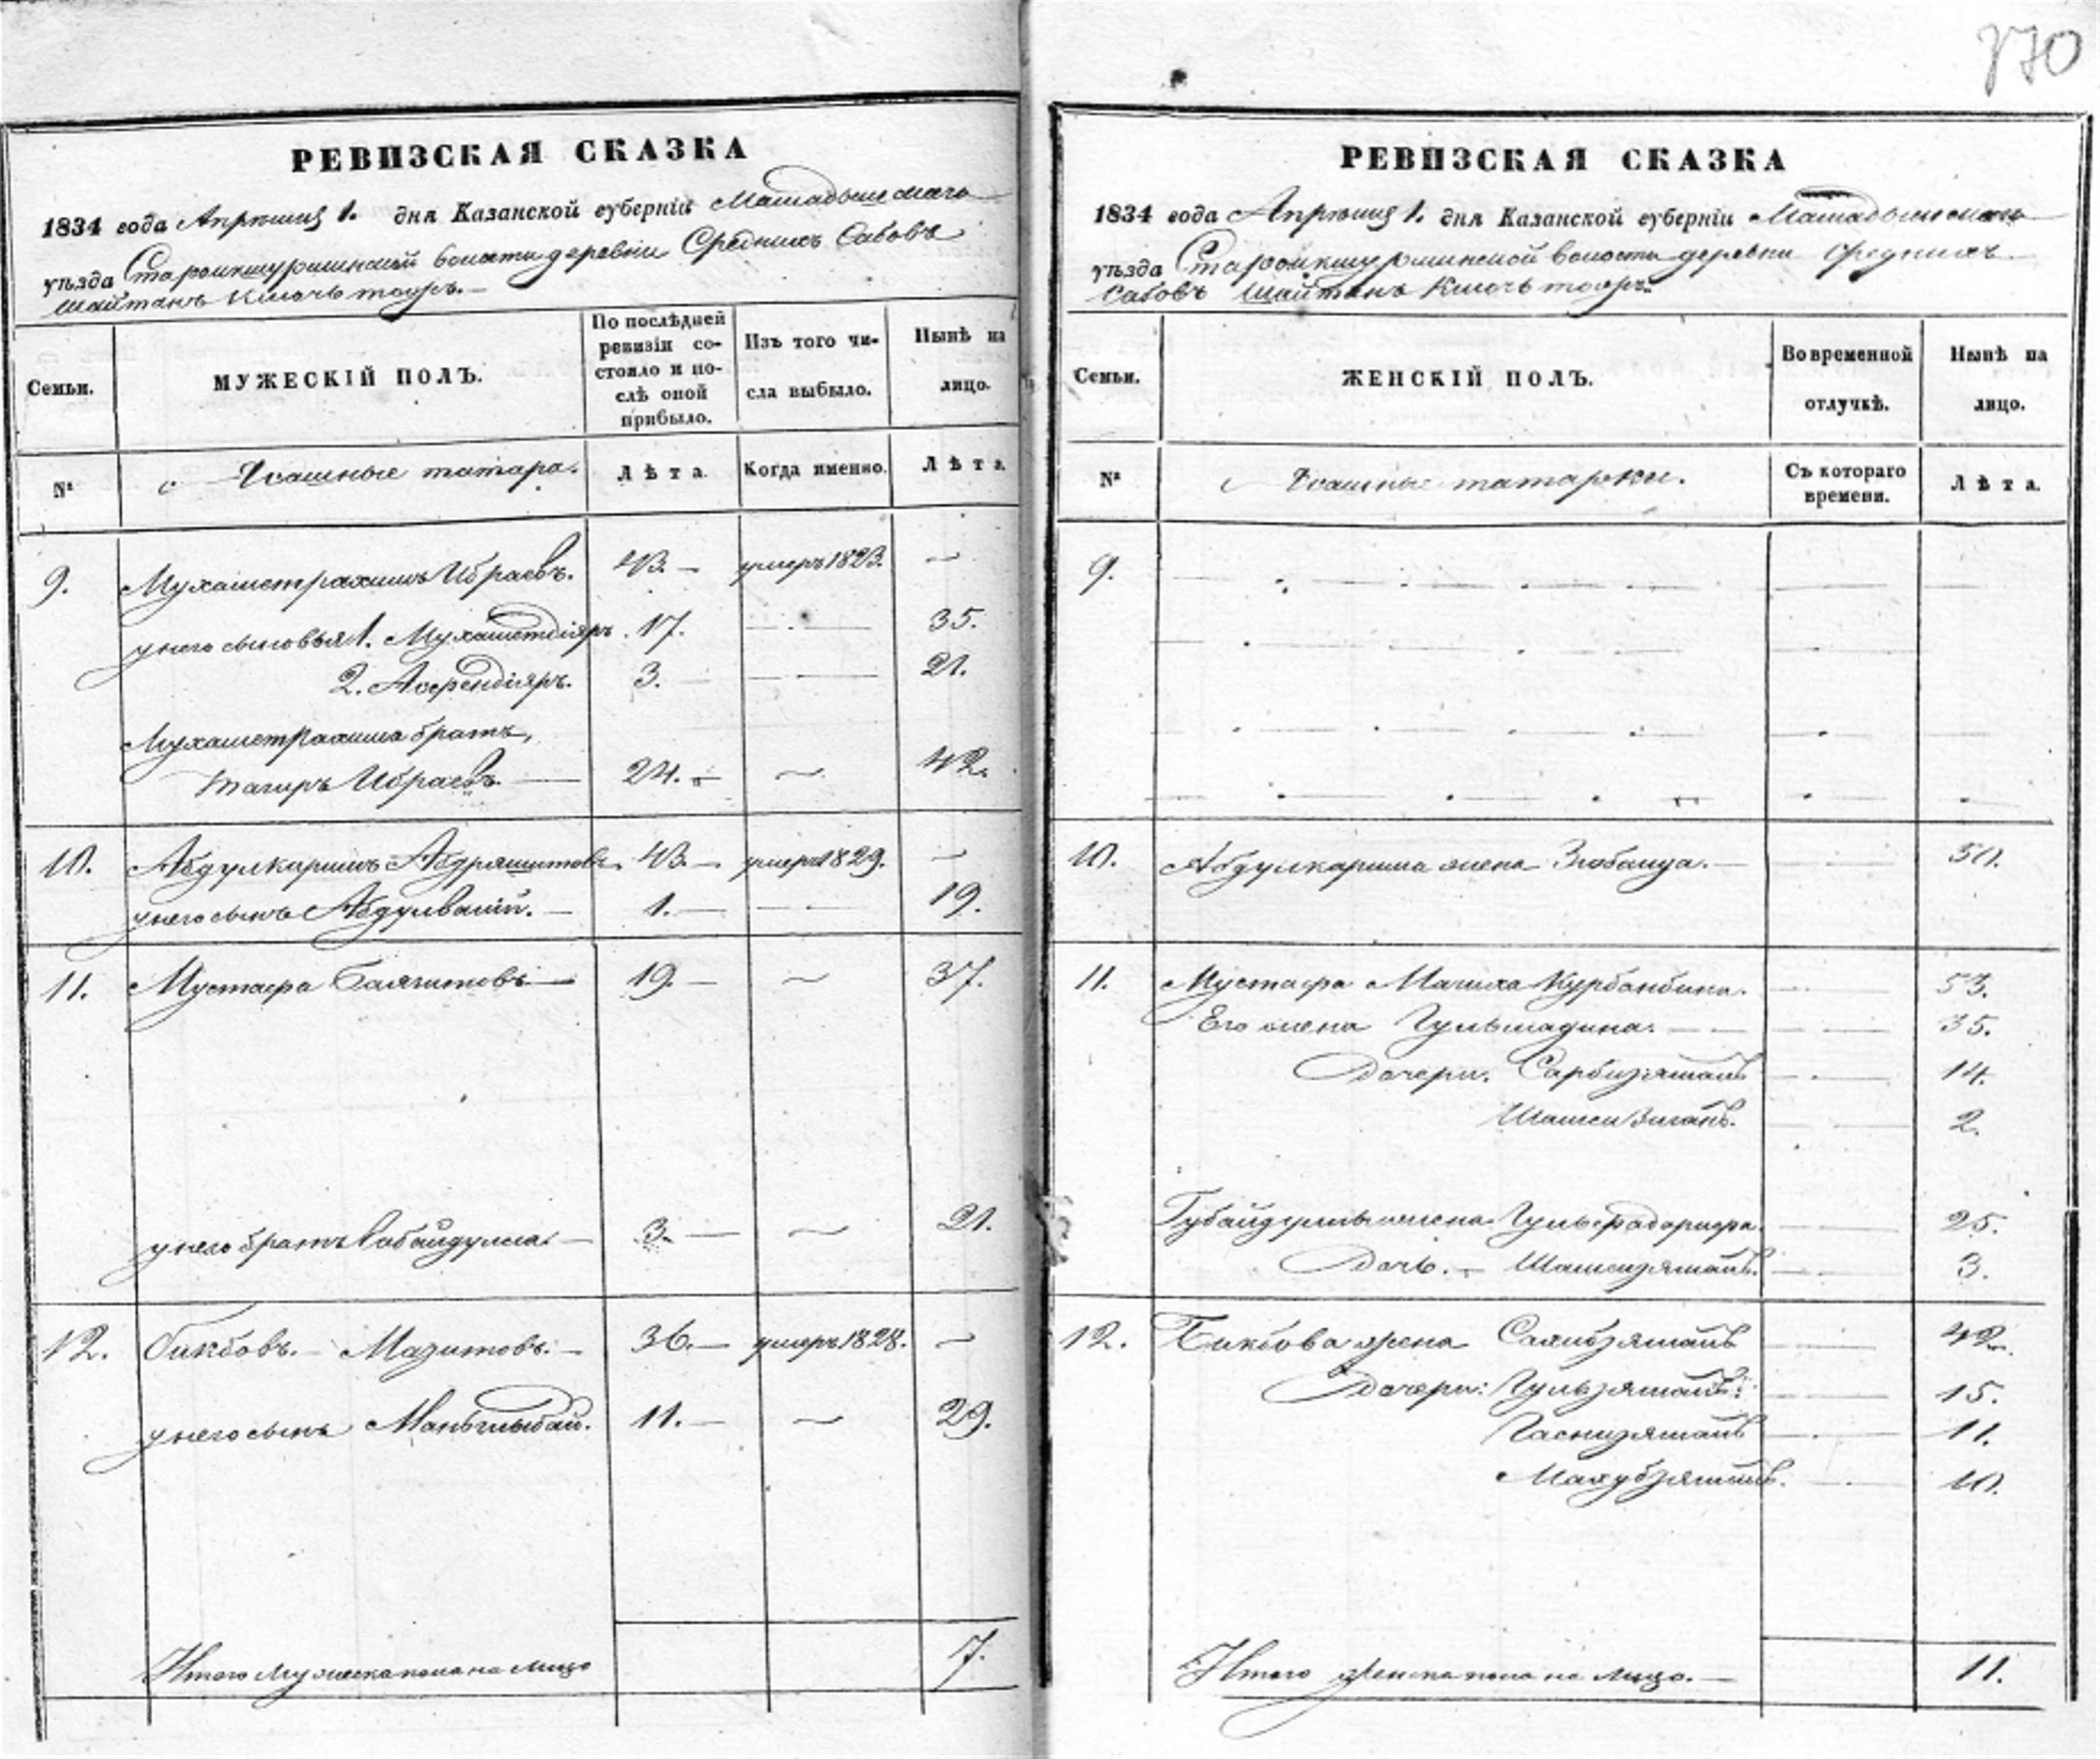 370
РЕВИЗСКАЯ СКАЗКА
1834 года Апрѣля 1. дня Казанской губерніи Мамадышскаго
уѣзда Староикшурминской волости деревни Среднихъ Сабовъ
Шайтанъ Ключь тожъ.
Семьи.
МУЖЕСКІЙ ПОЛЪ.
По послѣдней ревизіи состояло и послѣ оной прибыло.
Изъ того числа выбыло.
Нынѣ на лицо.
№
Ясашные татара.
Лѣта.
Когда именно.
Лѣта.
9. Мухаметрахимъ Ибраевъ. 43. — умеръ 1823. —
у него сыновья 1. Мухаметдіяръ. 17. — 35.
2. Асфендіяръ. 3. — 21.
Мухаметрахима братъ,
Тагиръ Ибраевъ. 24. — 42.
10. Абдулкаримъ Абдряшитовъ. 43. — умеръ 1829. —
у него сынъ Абдулвалій. — 1. — 19.
11. Мустафа Баязитовъ — 19. — 37.
у него братъ Габайдулла. — 3. — 21.
12. Бикбовъ. Мазитовъ. — 36. — умеръ 1828. —
у него сынъ Манглыбай. 11. — 29.
Итого мужеска пола на лицо 7.
РЕВИЗСКАЯ СКАЗКА
1834 года Апрѣля 1. дня Казанской губерніи Мамадышскаго
уѣзда Староикшурминской волости деревни Среднихъ
Сабовъ Шайтанъ Ключь тожъ.
Семьи.
ЖЕНСКІЙ ПОЛЪ.
Во временной отлучкѣ.
Нынѣ на лицо.
№
Ясашные татарки.
Съ котораго времени.
Лѣта.
9.
10. Абдулкарима жена Зюбаида. — 50.
11. Мустафа Мачиха Курбанбика. 53.
Его жена Гульмадина. 35.
Дочери. Сарбизямалъ 14.
Шамсизиганъ. 2.
Губайдуллы жена Гульфаторифа. 25.
Дочь. — Шамсизямалъ. 3.
12. Бикбова жена Саливзямалъ 42.
Дочери: Гульзямалъ: 15.
Хаснизямалъ 11.
Махубзямалъ. 10.
Итого женска пола на лицо. — 11.